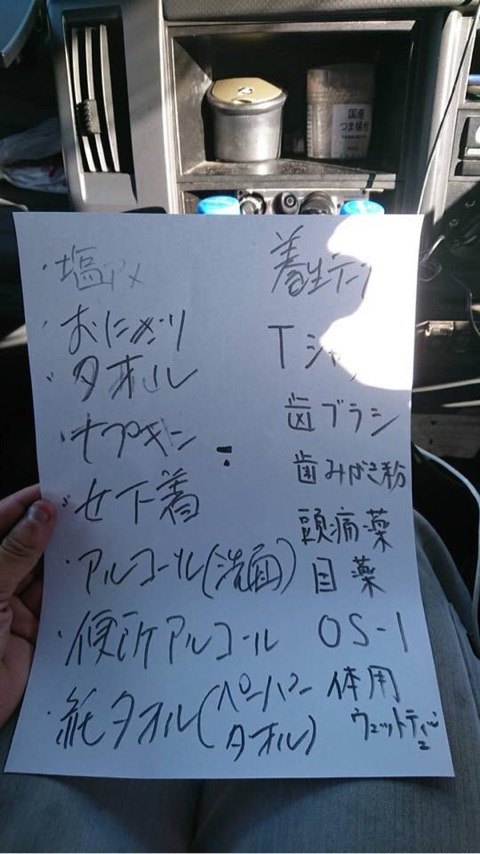 国産
つま楊枝
・塩アメ
・おにぎり
・タオル
・ナプキン
・女下着
・アルコール(洗面)
・便所アルコール
・紙タオル(ペーパー
タオル)
養生テ
Tシャ
歯ブラシ
歯みがき粉
頭痛薬
目薬
OS-1
体用
ウェットティ